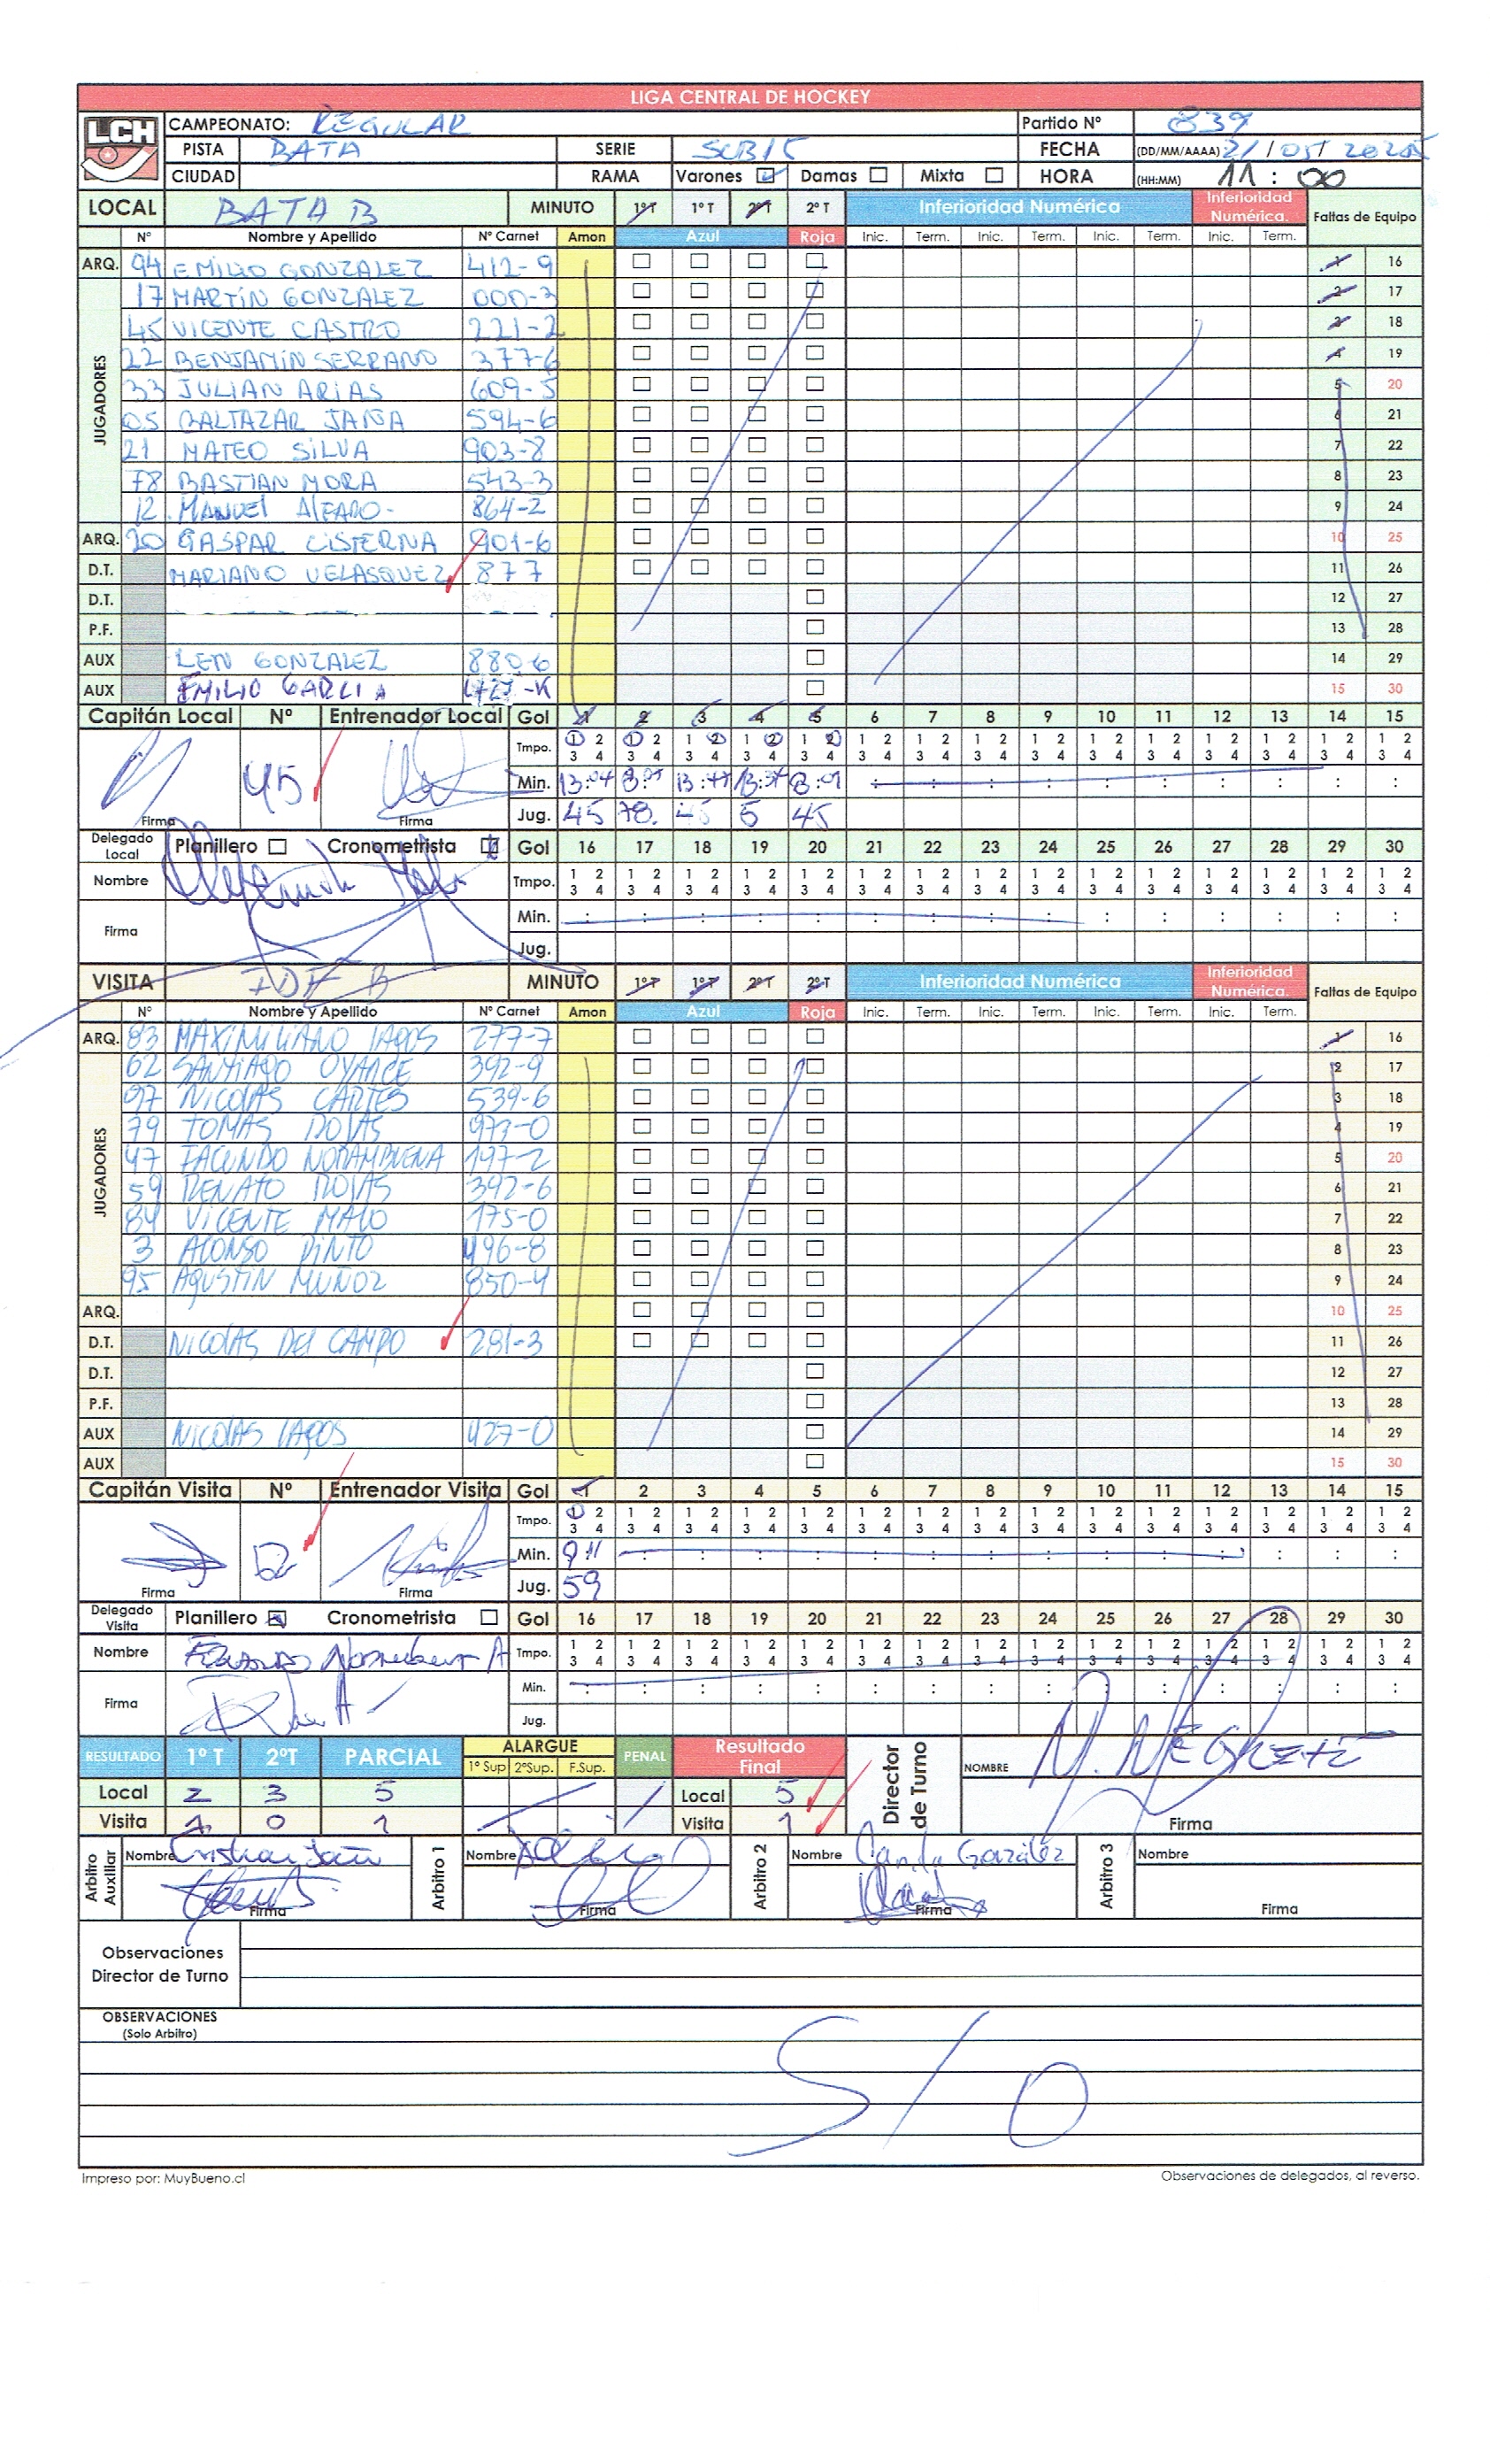 LIGA CENTRAL DE HOCKEY
LCH CAMPEONATO: REGULAR Partido Nº 839
PISTA BATA SERIE SUB15 FECHA (DD/MM/AAAA) 21/05/2025
CIUDAD RAMA Varones Damas Mixta HORA (HH:MM) 11:00
LOCAL BATA B MINUTO 1º T 1º T 2º T 2º T Inferioridad Numérica Inferioridad Numérica. Faltas de Equipo
Nº Nombre y Apellido Nº Carnet Amon Azul Roja Inic. Term. Inic. Term. Inic. Term. Inic. Term.
ARQ. 94 EMILIO GONZALEZ 412-9 1 16
17 MARTIN GONZALEZ 000-3 2 17
45 VICENTE CASTRO 221-2 3 18
22 BENJAMIN SERRANO 377-6 4 19
JUGADORES 33 JULIAN ARIAS 609-5 5 20
05 BALTAZAR JAÑA 594-6 6 21
21 MATEO SILVA 903-8 7 22
78 BASTIAN MORA 543-3 8 23
12. MANUEL ALFARO- 864-2 9 24
ARQ. 20 GASPAR CISTERNA 901-6 10 25
D.T. MARIANO VELASQUEZ 877 11 26
D.T. 12 27
P.F. 13 28
AUX GONZALEZ 880-6 14 29
AUX EMILIO GARCIA 15 30
Capitán Local Nº Entrenador Local Gol 1 2 3 4 5 6 7 8 9 10 11 12 13 14 15
Tmpo. 1 2 1 2 1 2 1 2 1 2 1 2 1 2 1 2 1 2 1 2 1 2 1 2 1 2 1 2 1 2
3 4 3 4 3 4 3 4 3 4 3 4 3 4 3 4 3 4 3 4 3 4 3 4 3 4 3 4 3 4
45 Min. 13:04
Firma Firma Jug. 45 78. 45 5 45
Delegado Local Planillero Cronometrista Gol 16 17 18 19 20 21 22 23 24 25 26 27 28 29 30
Nombre Tmpo. 1 2 1 2 1 2 1 2 1 2 1 2 1 2 1 2 1 2 1 2 1 2 1 2 1 2 1 2 1 2
3 4 3 4 3 4 3 4 3 4 3 4 3 4 3 4 3 4 3 4 3 4 3 4 3 4 3 4 3 4
Firma Min. : : : : : : : : : : : : : : :
Jug.
VISITA IDF B MINUTO 1º T 1º T 2º T 2º T Inferioridad Numérica Inferioridad Numérica. Faltas de Equipo
Nº Nombre y Apellido Nº Carnet Amon Azul Roja Inic. Term. Inic. Term. Inic. Term. Inic. Term.
ARQ. 83 MAXIMILIANO LAGOS 277-7 1 16
62 SANTIAGO OYARCE 392-9 2 17
97 NICOLAS CARTES 539-6 3 18
79 TOMAS ROJAS 973-0 4 19
JUGADORES 47 FACUNDO NORAMBUENA 197-2 5 20
59 RENATO ROJAS 392-6 6 21
84 VICENTE MALO 175-0 7 22
3 ALONSO PINTO 496-8 8 23
95 AGUSTIN MUÑOZ 850-4 9 24
ARQ. 10 25
D.T. NICOLAS DEL CAMPO 281-3 11 26
D.T. 12 27
P.F. 13 28
AUX NICOLAS LAGOS 427-0 14 29
AUX 15 30
Capitán Visita Nº Entrenador Visita Gol 1 2 3 4 5 6 7 8 9 10 11 12 13 14 15
Tmpo. 1 2 1 2 1 2 1 2 1 2 1 2 1 2 1 2 1 2 1 2 1 2 1 2 1 2 1 2 1 2
3 4 3 4 3 4 3 4 3 4 3 4 3 4 3 4 3 4 3 4 3 4 3 4 3 4 3 4 3 4
Min. 9:11 : : : : : : : : : : : : : :
Firma Firma Jug. 59
Delegado Visita Planillero Cronometrista Gol 16 17 18 19 20 21 22 23 24 25 26 27 28 29 30
Nombre Tmpo. 1 2 1 2 1 2 1 2 1 2 1 2 1 2 1 2 1 2 1 2 1 2 1 2 1 2 1 2 1 2
3 4 3 4 3 4 3 4 3 4 3 4 3 4 3 4 3 4 3 4 3 4 3 4 3 4 3 4 3 4
Firma Min. : : : : : : : : : : : : : : :
Jug.
RESULTADO 1º T 2ºT PARCIAL ALARGUE 1º Sup 2ºSup. F.Sup. PENAL Resultado Final Director de Turno NOMBRE M. NEGRETE
Local 2 3 5 Local 5
Visita 1 0 1 Visita 1 Firma
Arbitro Auxiliar Nombre Arbitro 1 Nombre Arbitro 2 Nombre Camila González Arbitro 3 Nombre
Firma Firma Firma Firma
Observaciones
Director de Turno
OBSERVACIONES
(Solo Arbitro)
S/O
Impreso por: MuyBueno.cl Observaciones de delegados, al reverso.